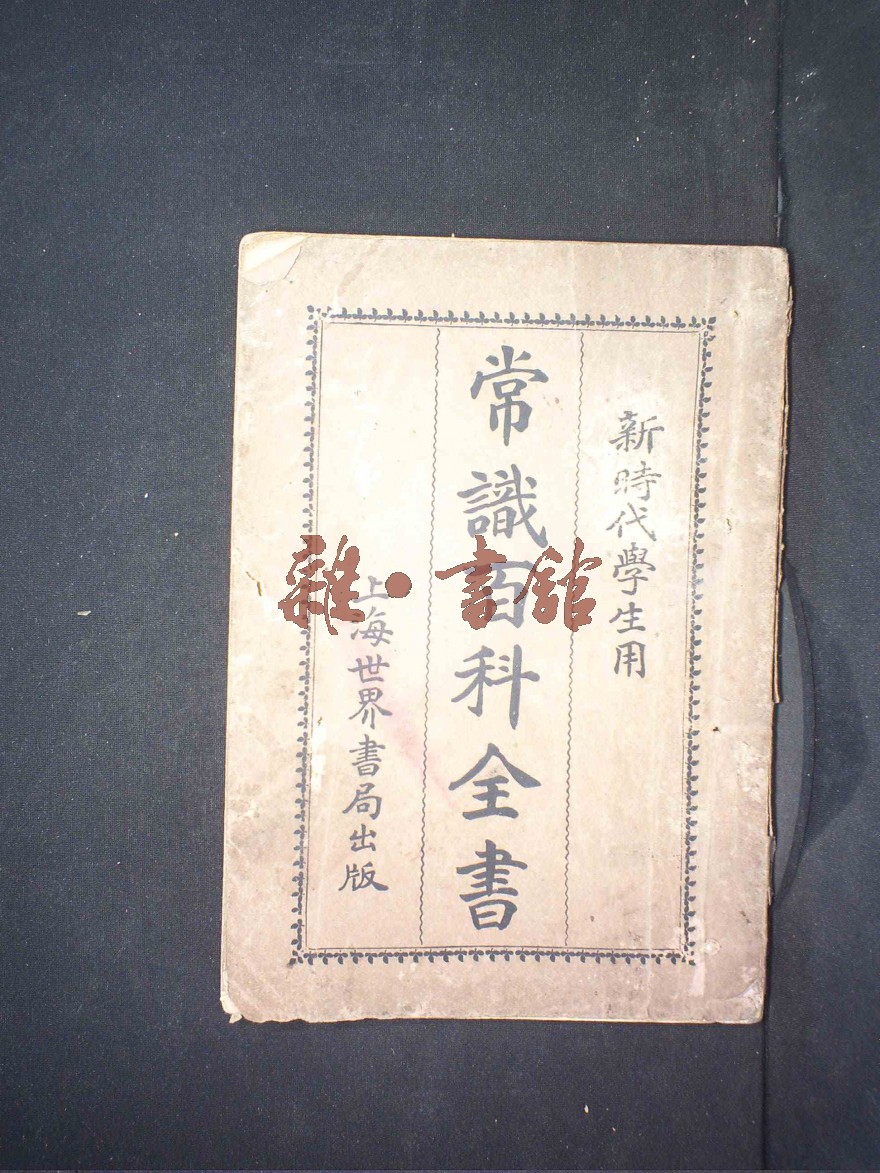 新時代學生用
常識百科全書
上海世界書局出版
雜·書館